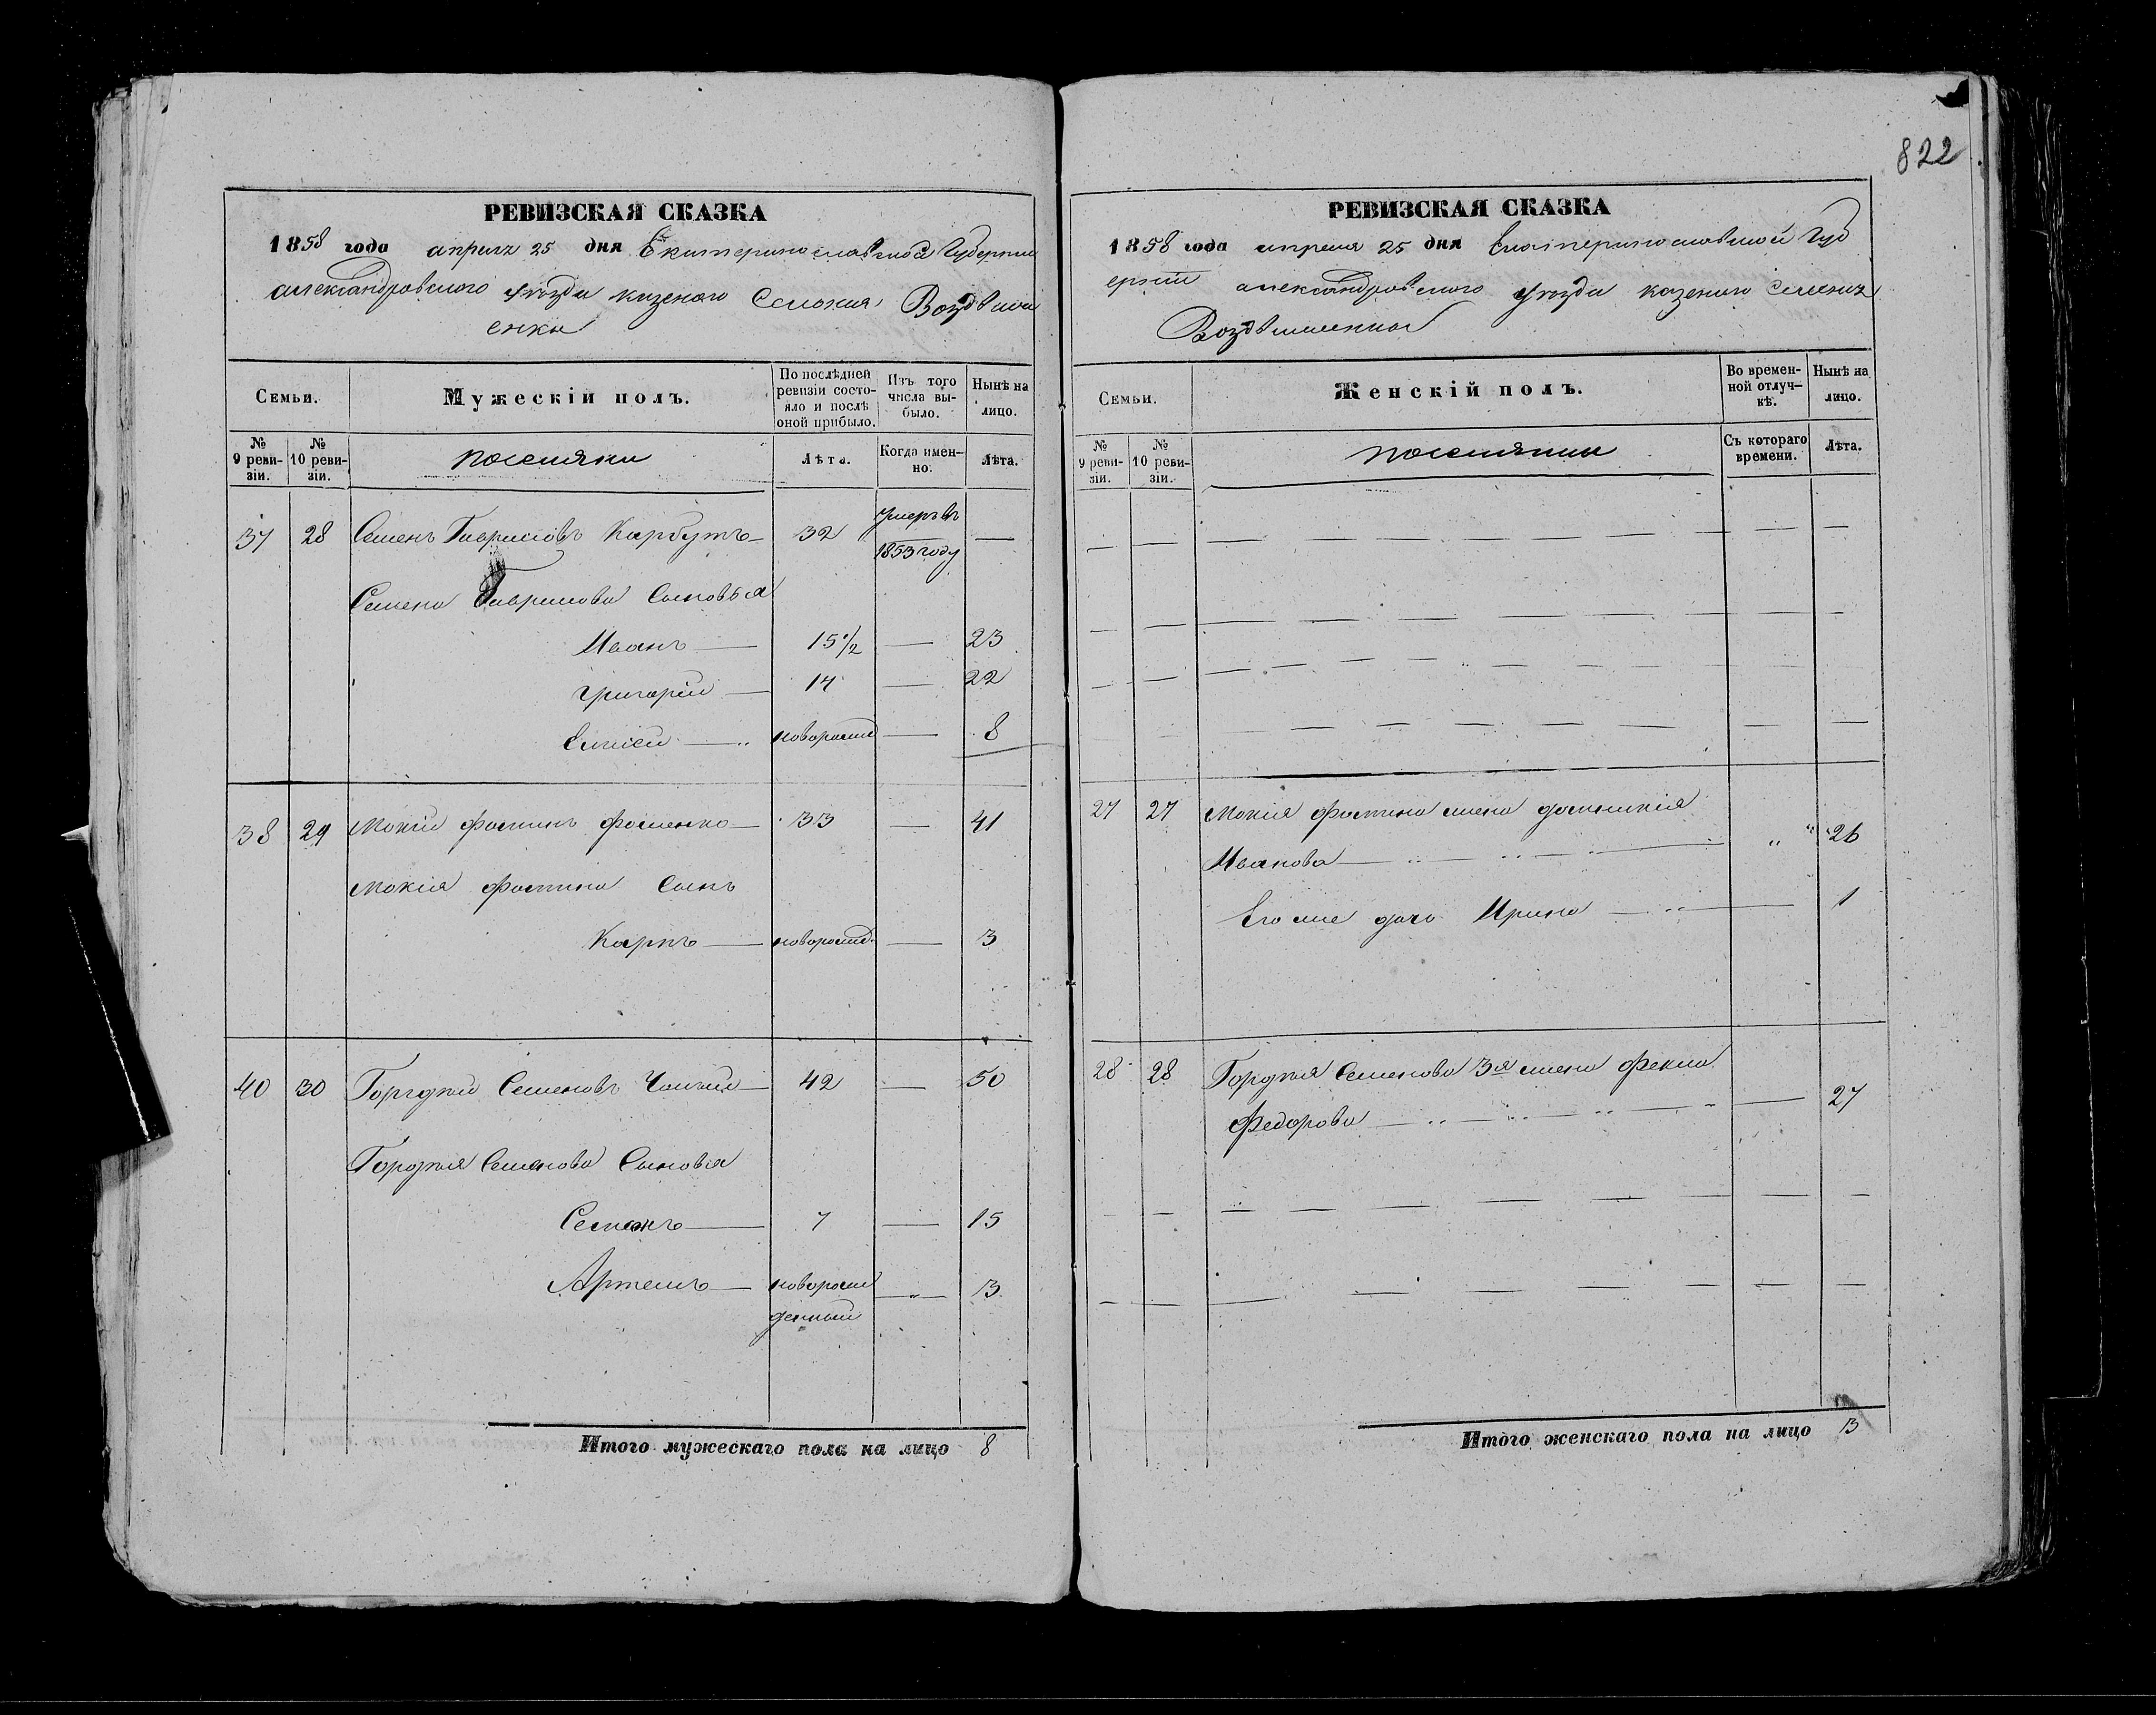 822
РЕВИЗСКАЯ СКАЗКА
1858 года апреля 25 дня Екатеринославской Губернии
александровского уезда казеного Селения Воздвиж
енки
Семьи.
Мужескій полъ.
По послѣдней ревизіи состояло и послѣ оной прибыло.
Изъ того числа выбыло.
Нынѣ на лицо.
№ 9 ревизіи.
№ 10 ревизіи.
поселяни
Лѣта.
Когда именно.
Лѣта.
37 28 Семенъ Гавриловъ Карбутъ 32 умеръ въ 1853 году —
Семена Гаврилова Сыновья
Иванъ 15 1/2 — 23
григорій 14 — 22
новорожд — 8
38 29 Мокій фоминъ фоменко 33 — 41
Мокія фомина Сынъ
Карпъ новорожд. — 3
40 30 Гордѣй Семеновъ 42 — 50
Гордѣя Семенова Сыновья
Семенъ 7 — 15
Артемъ новорож — 3
денный
Итого мужескаго пола на лицо 8
РЕВИЗСКАЯ СКАЗКА
1858 года апреля 25 дня Екатеринославской Губ
ерніи александровского уезда казеного Селения
Воздвиженки
Семьи.
Женскій полъ.
Во временной отлучкѣ.
Нынѣ на лицо.
№ 9 ревизіи.
№ 10 ревизіи.
поселянки
Съ котораго времени.
Лѣта.
27 27 Мокія фомина жена домникія
Иванова " 26
Его же дочь Ирина — 1
28 28 Гордѣя Семенова 3я жена Фекла
Федорова — 27
Итого женскаго пола на лицо 3